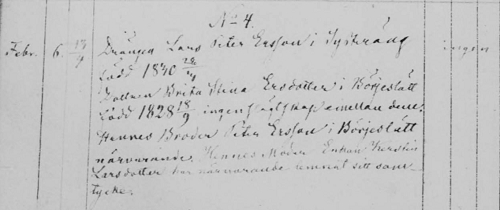 No 4.
Febr. 6 Drängen Lars Peter Ersson i ingen
född 1830
Brita Stina Ersdotter i Börjeslätt
född 1828 18/9 ingen emellan dem.
Hennes Broder Peter Ersson i Börjeslätt
närvarande. Hennes Moder Enkan Kerstin
Larsdotter har närvarande lemnat sitt sam-
tycke.